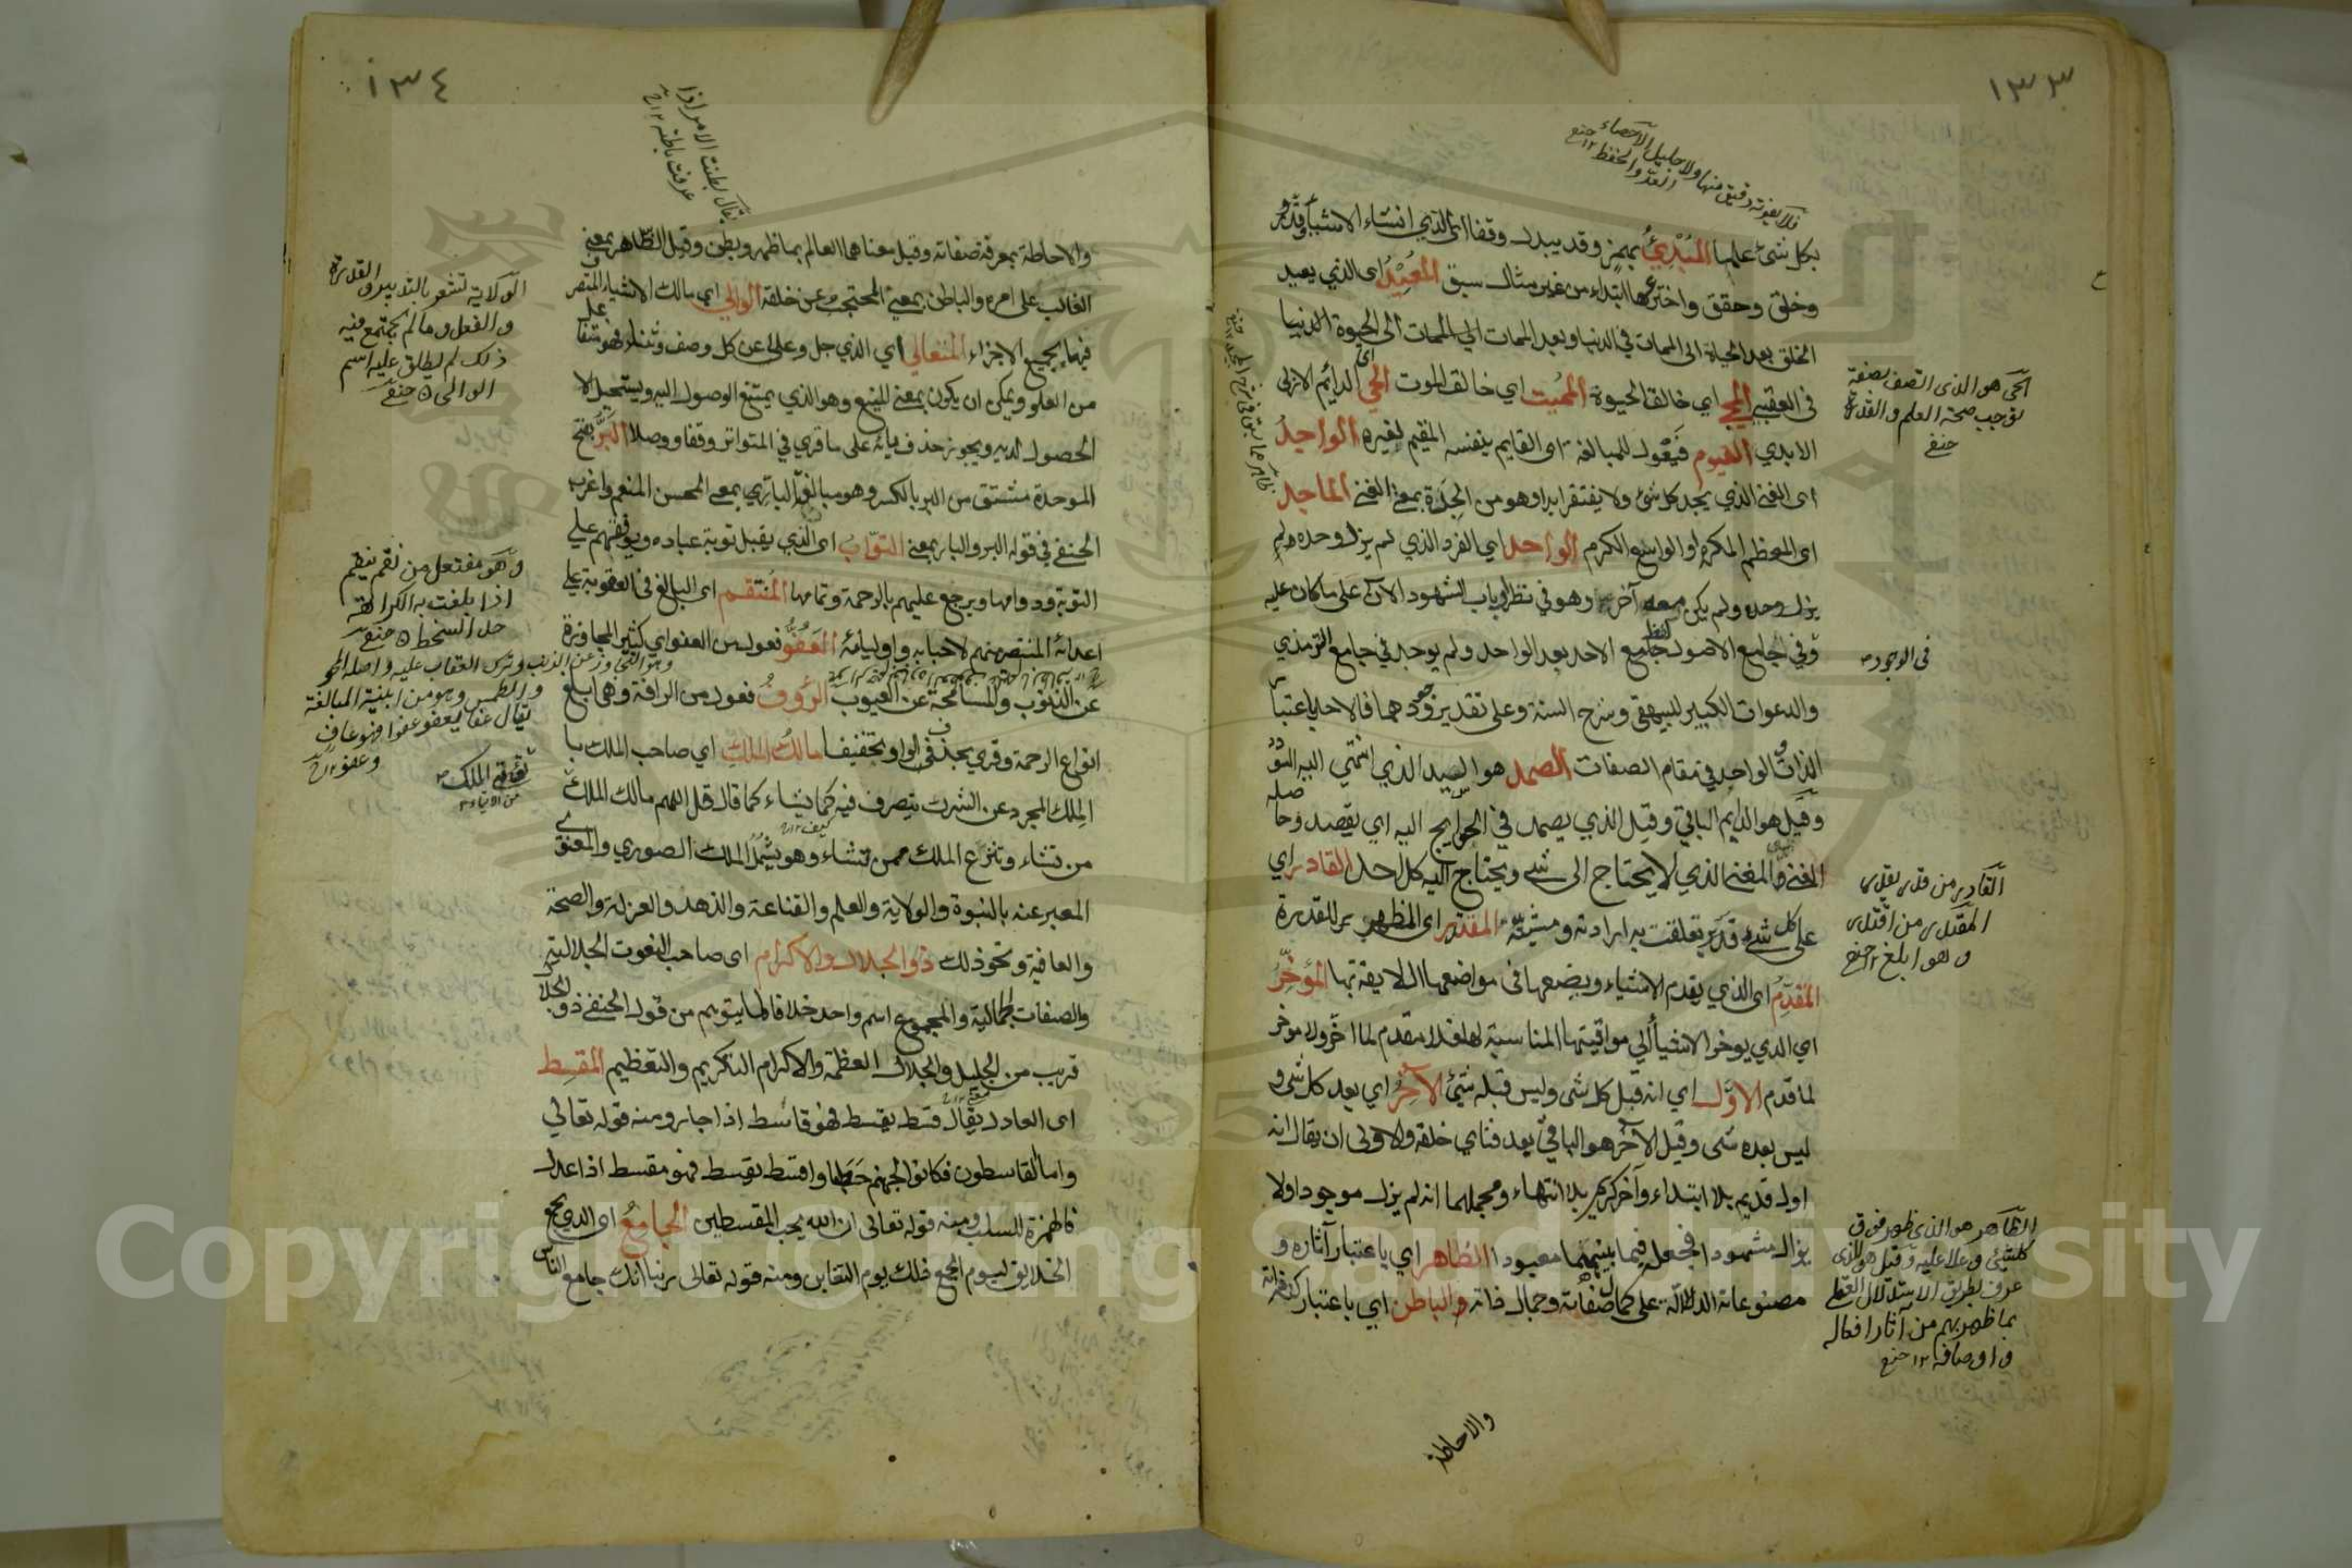 ١٣٣
فلا يفوته دقيق منها ولا جليل الاحصاء
العد والحفظ ١٢ حنفى
بكل شئ علما المبدئ بهمز وقد يبدل وقفا اى الذي انشاء الاشياء وقدر
وخلق وحقق واخترعها ابتداء من غير مثال سبق المعيد اى الذي يعيد
الخلق بعد الحياة الى الممات في الدنيا وبعد الممات الى الحيوة
فى العقبى المحي اي خالق الحيوة المميت اي خالق الموت الحي اى الدائم الازلى
الابدي القيوم فيعول للمبالغة اى القايم بنفسه المقيم لغيره الواجد
اى الغنى الذي يجد كل شئ ولا يفتقر ابدا وهو من الجدة بمعنى الغنى الماجد
اى المعظم المكرم او الواسع الكرم الواحد اي الفرد الذي لم يزل وحده ولم
يزل وحده ولم يكن معه آخر وهو في نظر ارباب الشهود الآن على ما كان عليه
وفي جامع الاصول لفظ الاحد بعد الواحد ولم يوجد في جامع الترمذي
والدعوات الكبير للبيهقي وشرح السنة وعلى تقدير وجودهما فالاحد باعتبار
الذات والواحد في مقام الصفات الصمد هو السيد الذي انتهى اليه السودد
وقيل هو الدايم الباقي وقيل الذي يصمد في الحوايج اليه اي يقصد وحاصله
الغنى المغنى الذي لا يحتاج الى شئ ويحتاج اليه كل احد القادر اي
على كل شئ قدير تعلقت به ارادته ومشيته المقتدر اى المظهر للقدرة
المقدم اى الذي يقدم الاشياء ويضعها فى مواضعها اللايقة بها المؤخر
اي الذي يوخر الاشياء الى مواقيتها المناسبة لها فلا مقدم لما اخر ولا موخر
لما قدم الاول اي انه قبل كل شى وليس قبله شئ الآخر اي بعد كل شى و
ليس بعده شى وقيل الآخر هو الباقي بعد فناي خلقه والاولى ان يقال انه
اول قديم بلا ابتداء وآخر كريم بلا انتهاء ومجملهما انه لم يزل موجودا ولا
يزال مشهودا فجعل فيما بينهما معبودا الظاهر اي باعتبار آثاره و
مصنوعاته الدالة على كمال صفاته وجمال ذاته والباطن اي باعتبار كنه ذاته
والاحاطة
الحى هو الذى اتصف بصفة
توجب صحة العلم والقدرة
حنفى
فى الوجود
القادر من قدر يقدر
المقتدر من اقتدر
وهو ابلغ ١٢ حنفى
الظاهر هو الذى ظهر فوق
كل شئ وعلا عليه وقيل هو الذى
عرف بطريق الاستدلال العقلى
بما ظهر بهم من آثار افعاله
واوصافه ١٢ حنفى
١٣٤
يقال بطنت الامر اذا
عرفت باطنه ١٢
والاحاطة بمعرفة صفاته وقيل معناهما العالم بما ظهر وبطن وقيل الظاهر بمعنى
الغالب على امره والباطن بمعنى المحتجب عن خلقه الوالي اي مالك الاشياء المتصرف
فيها بجميع الاجزاء المتعالي اي الذي جل وعلى عن كل وصف وثناء فهو متفاعل
من العلو ويمكن ان يكون بمعنى المنيع وهو الذي يمتنع الوصول اليه ويستحيل
الحصول لديه ويجوز حذف يائه على ما قري في المتواتر وقفا ووصلا البر بفتح
الموحدة مشتق من البر بالكسر وهو مبالغة البار بمعنى المحسن المنعم واغرب
الحنفى في قوله البر والبار بمعنى التواب اى الذي يقبل توبة عباده ويوفقهم على
التوبة ودوامها ويرجع عليهم بالرحمة وتمامها المنتقم اى البالغ في العقوبة على
اعدائه المنتصر منهم لاحبابه واوليائه العفو فعول من العفو اي كثير المجاوزة
عن الذنوب والمسامحة عن العيوب الرؤوف فعول من الرافة وهى ابلغ
انواع الرحمة وقري بحذف الواو تخفيفا مالك الملك اي صاحب الملك
الملك المجرد عن الشرك يتصرف فيه كما يشاء كما قال قل اللهم مالك الملك
من تشاء وتنزع الملك ممن تشاء وهو يشمل الملك الصوري والمعنوى
المعبر عنه بالنبوة والولاية والعلم والقناعة والزهد والعزلة والصحة
والعافية ونحو ذلك ذو الجلال والاكرام اى صاحب النعوت الجلالية
والصفات الجمالية والمجموع اسم واحد خلافا لما يتوهم من قول الحنفى ذو الجلال
قريب من الجليل والجلال العظمة والاكرام التكريم والتعظيم المقسط
اى العادل يقال قسط يقسط فهو قاسط اذا جار ومنه قوله تعالي
واما القاسطون فكانوا لجهنم حطبا واقسط يقسط فهو مقسط اذا عدل
فالهمزة للسلب ومنه قوله تعالى ان الله يحب المقسطين الجامع اى الذي يجمع
الخلايق ليوم الجمع ذلك يوم التغابن ومنه قوله تعالى ربنا انك جامع الناس
الولاية تشعر بالتدبير والقدرة
والفعل وما لم يجتمع فيه
ذلك لم يطلق عليه اسم
الوالى حنفى
وهو مفتعل من نقم ينقم
اذا بلغت به الكراهة
حد السخط حنفى
وهو التجاوز عن الذنب وترك العقاب عليه واصله المحو
والطمس وهو من ابنية المبالغة
يقال عفا يعفو عفوا فهو عاف
وعفو ١٢
تؤتى الملك
Copyright © King Saud University